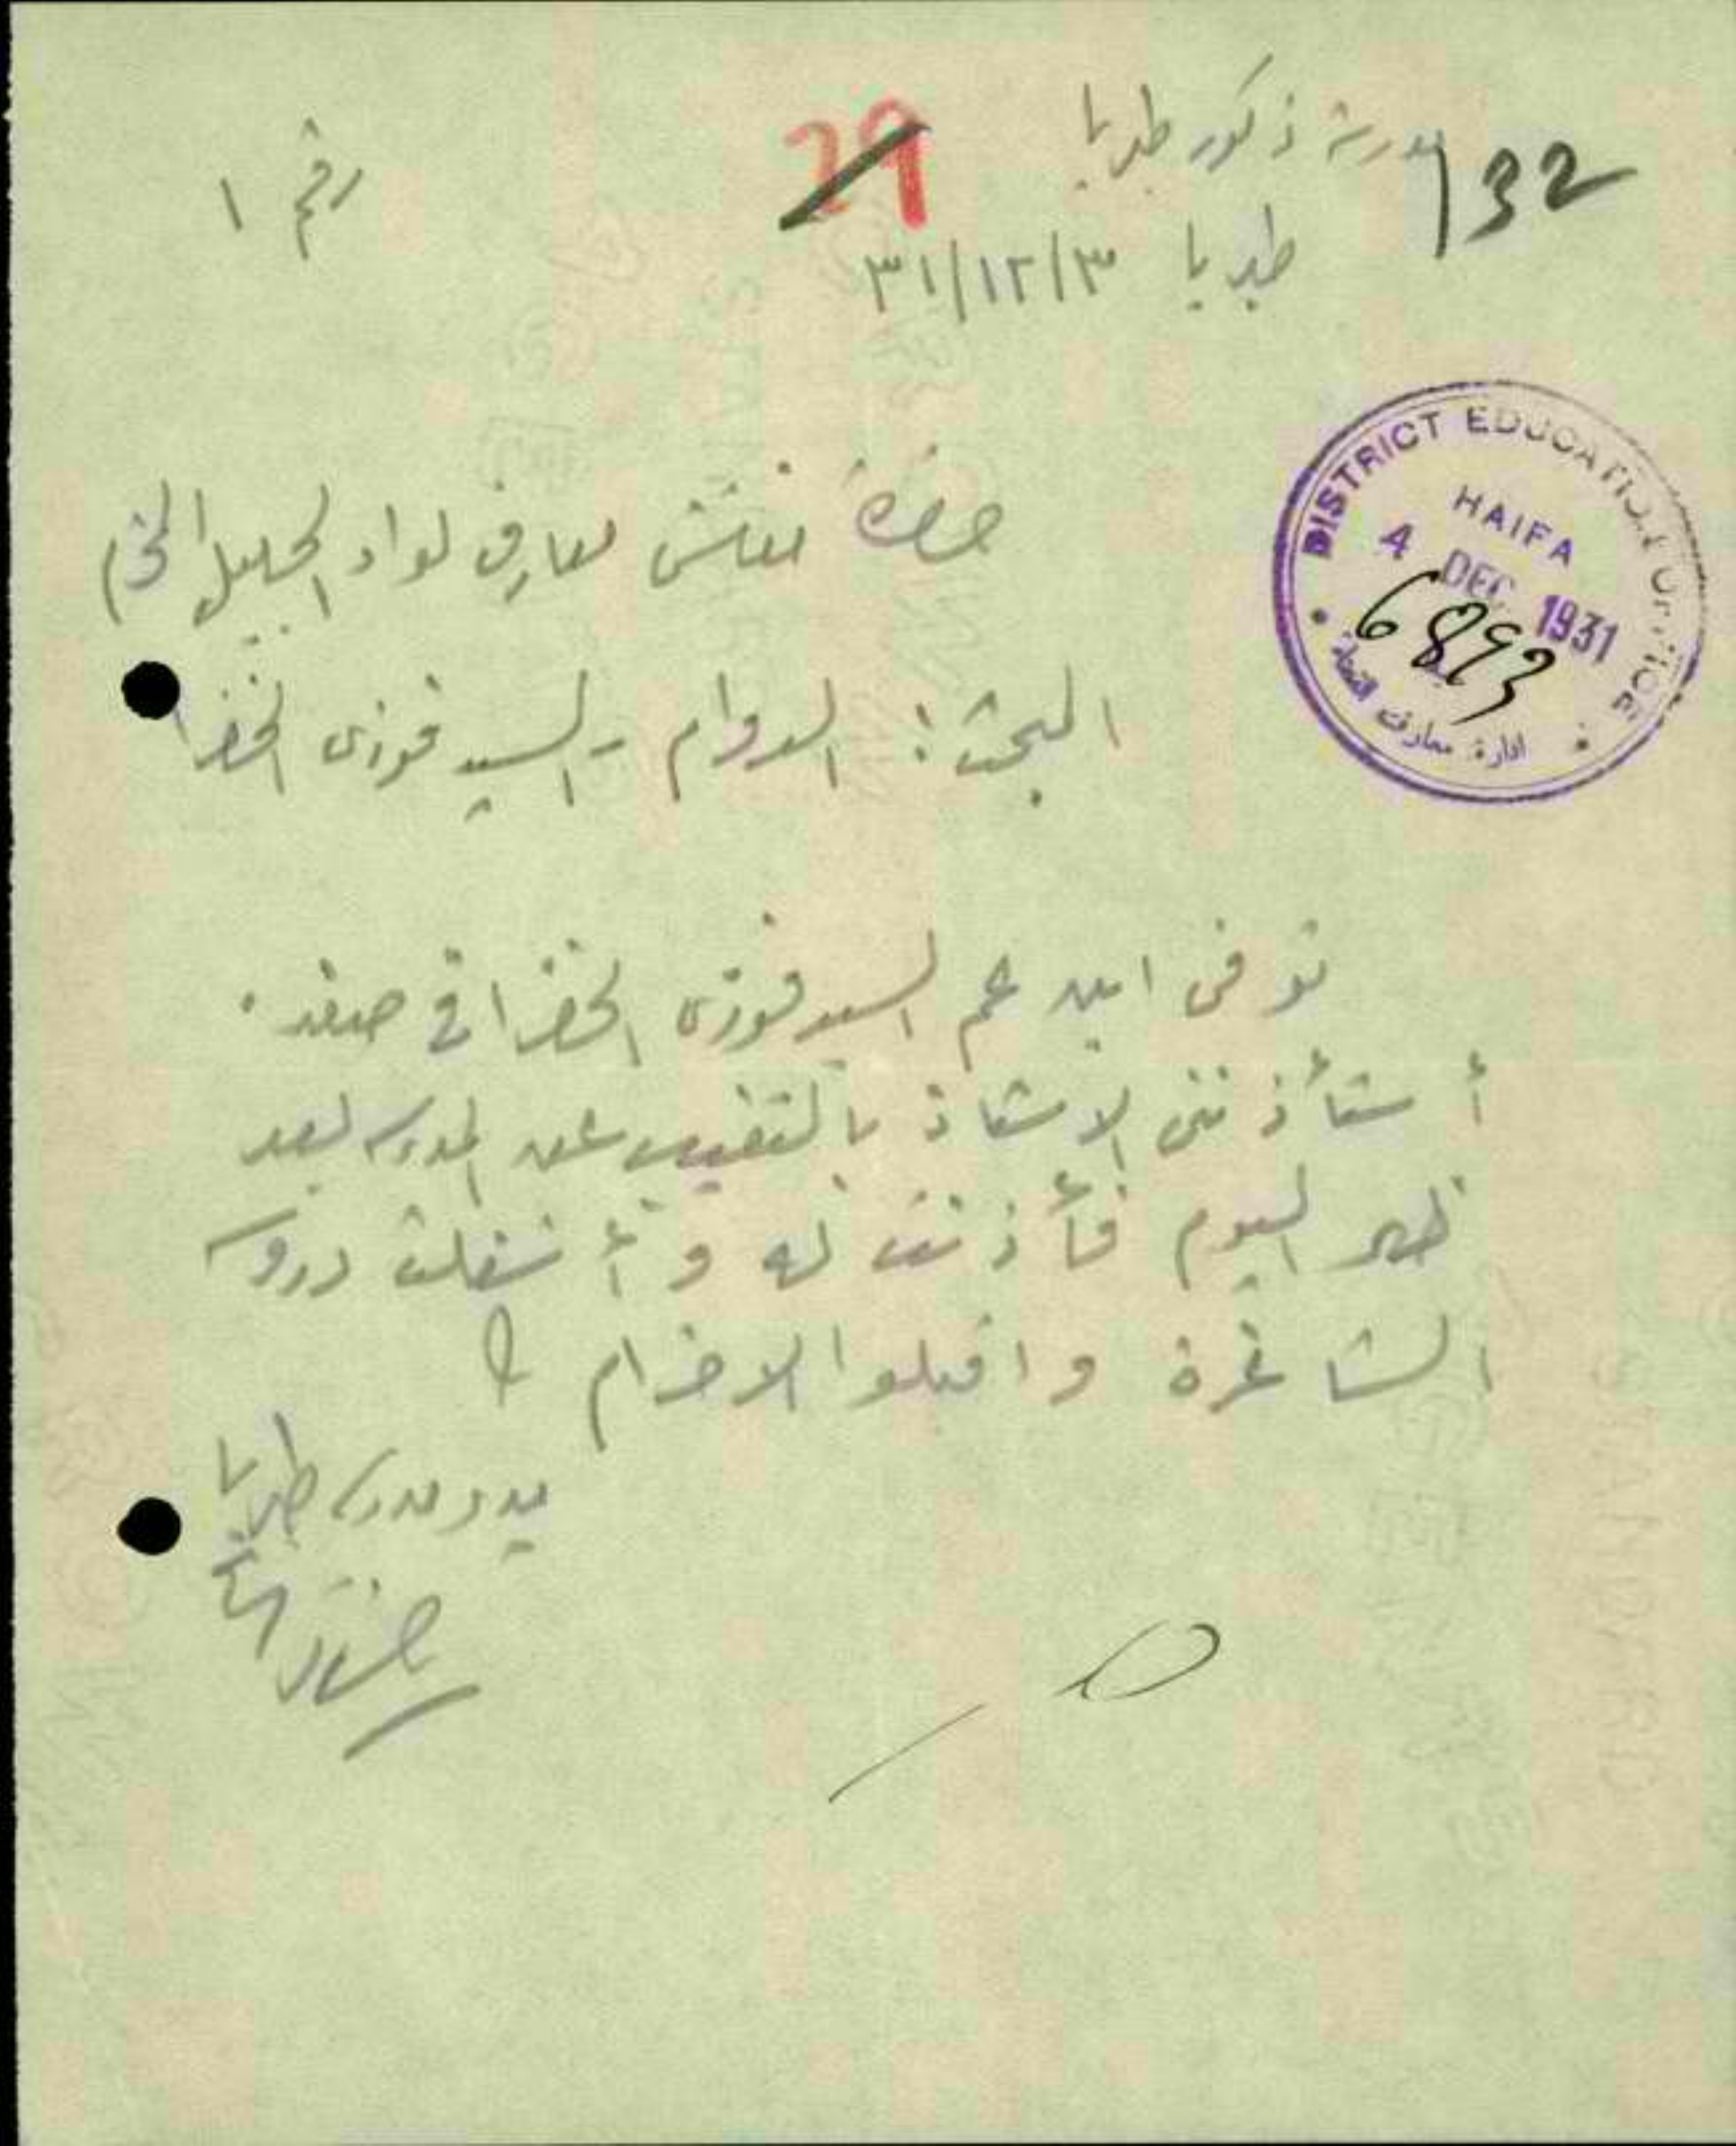 132
مدرسة ذكور طبريا
29
رقم ١
طبريا ٣١/١٢/٣
DISTRICT EDUCATION OFFICE
HAIFA
4 DEC 1931
6893
ادارة معارف
حضرة مفتش معارف لواء الجليل المحترم
البحث: الدوام - السيد فوزي الخضرا
توفى ابن عم السيد فوزي الخضرا في صفد.
أستأذنني الاستاذ بالتغيب عن المدرسة بعد
ظهر اليوم فأذنت له و أشغلت دروسه
الشاغرة واقبلوا الاحترام
مدير مدرسة طبريا